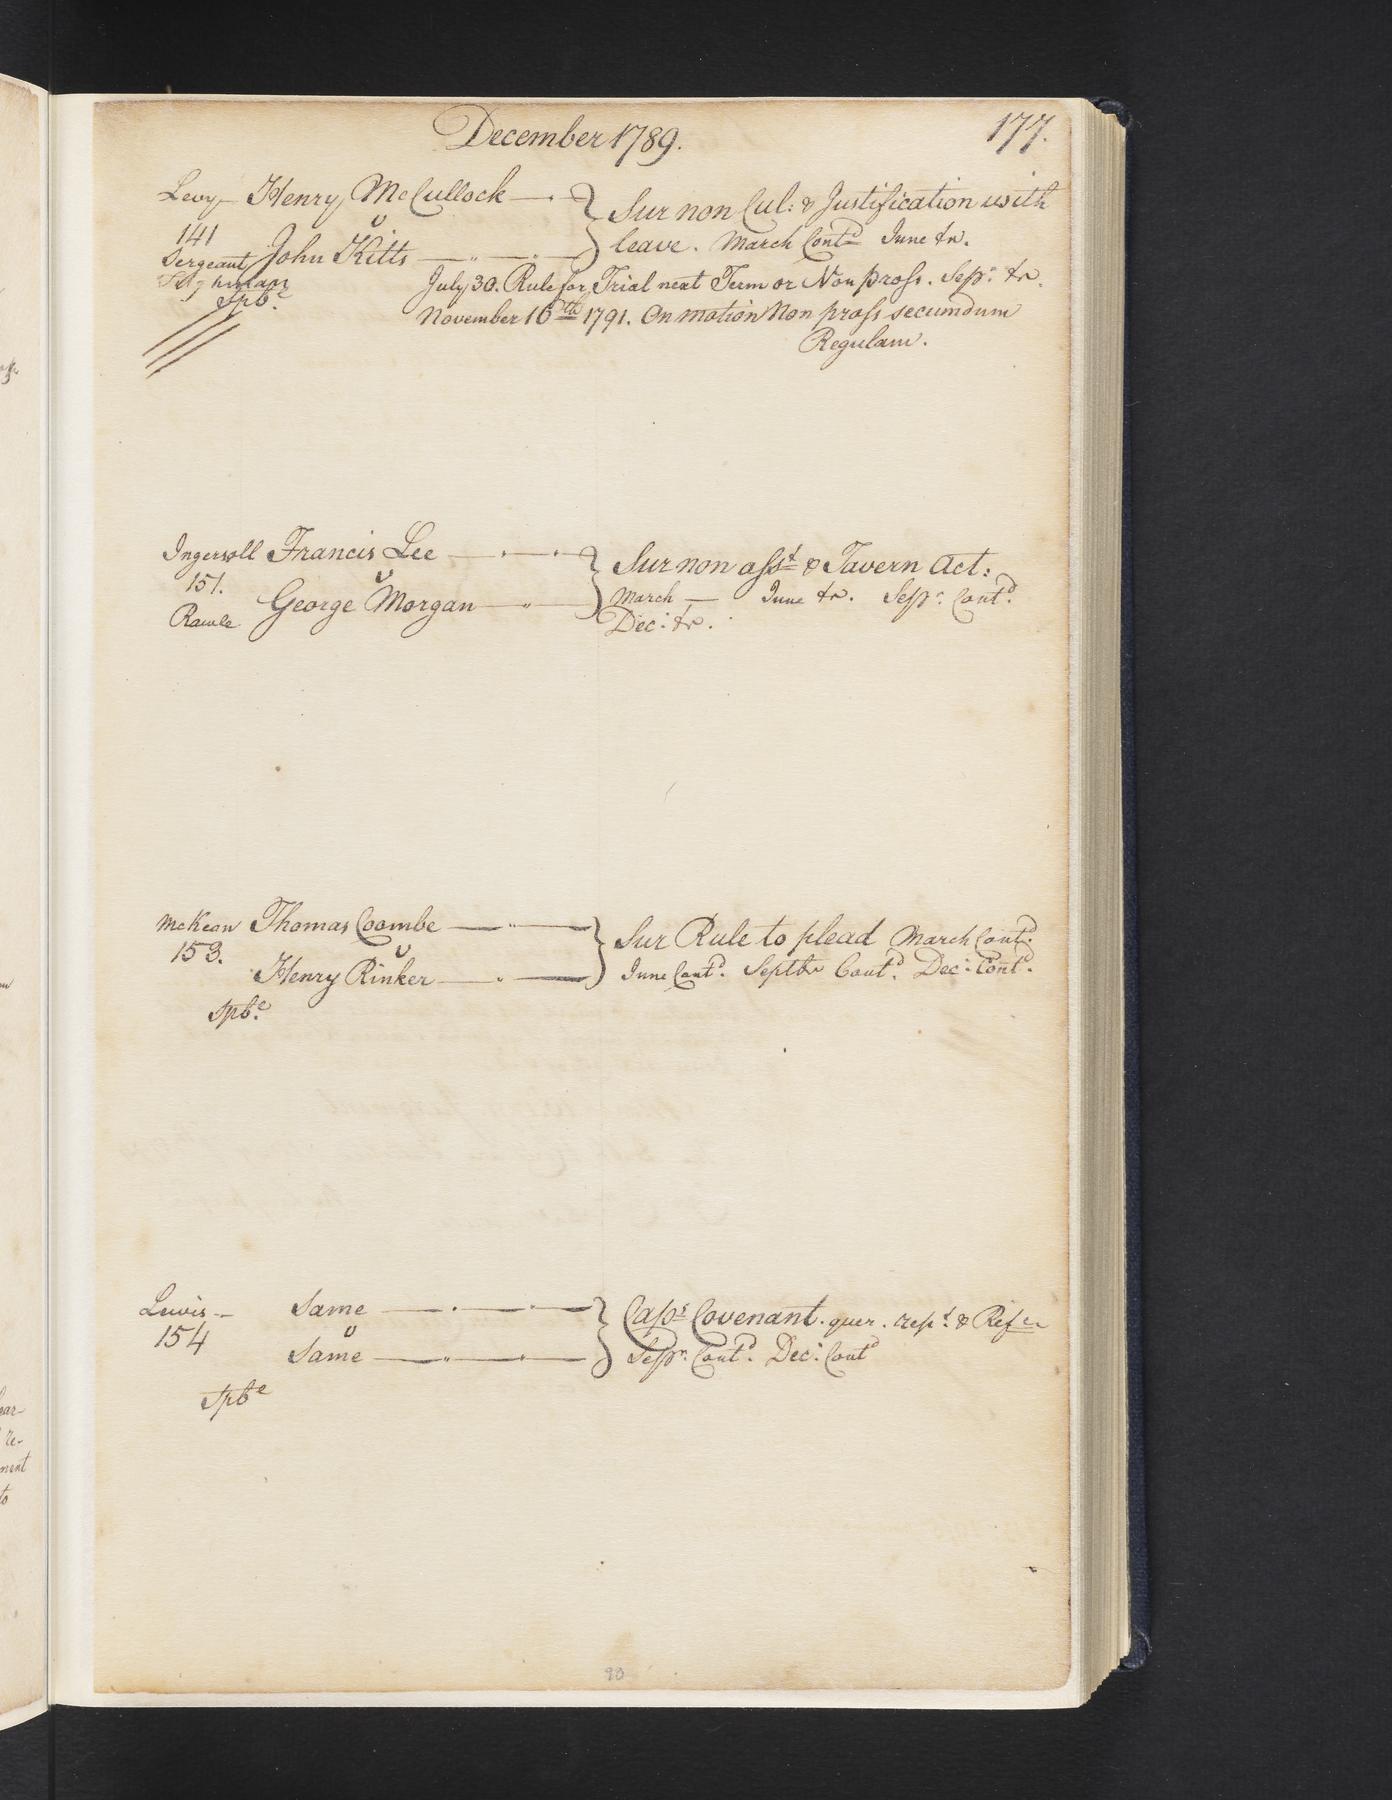 December 1789.
177.
Levy — Henry McCullock — · } Sur non Cul: & Justification with
v
141
Sergeant John Kitts — " — " — leave. March Cont.d June tr.
Spb.e
July 30. Rule for Trial next Term or Non pross. Sepr. tr.
November 16th 1791. On motion Non pross secundum
Regulam.
Ingersoll Francis Lee — · — · — } Sur non asst & Tavern Act:
v
151.
Rawle George Morgan — " — March — June tr. Sepr. Cont.d
Dec: tr.
McKean Thomas Coombe — " — } Sur Rule to plead March Cont.d
153. v
Henry Rinker — " — June Cont.d Septbr Cont.d Dec: Cont.d
Spb.e
Lewis — Same — · — · — } Caps Covenant. quer. rep.t & Refer
154 v
Same — " — · — Sepr. Cont.d Dec: Cont.d
Spb.e
90